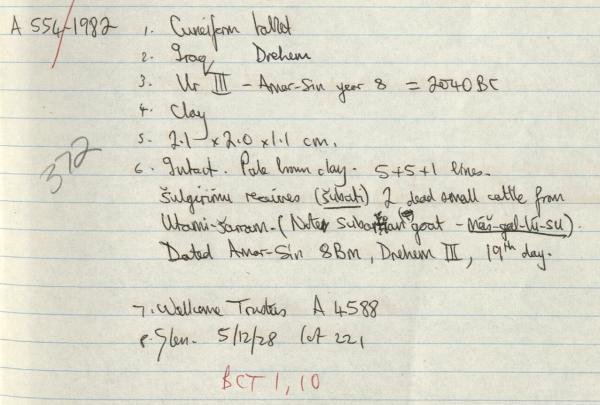 A 554-1982
1. Cuneiform tablet
2. Iraq Drehem
3. Ur III - Amar-Sin year 8 = 2040 BC
4. Clay
5. 2.1 x 2.0 x 1.1 cm.
372
6. Intact. Pale brown clay. 5+5+1 lines.
Šulgirimu receives (šubati) 2 dead small cattle from
Utami-šarram. (Note subartian goat - máš-gal-lú-su).
Dated Amar-Sin 8Bm, Drehem III, 19th day.
7. Wellcome Trustees A 4588
5/12/28 lot 221
BCT 1, 10